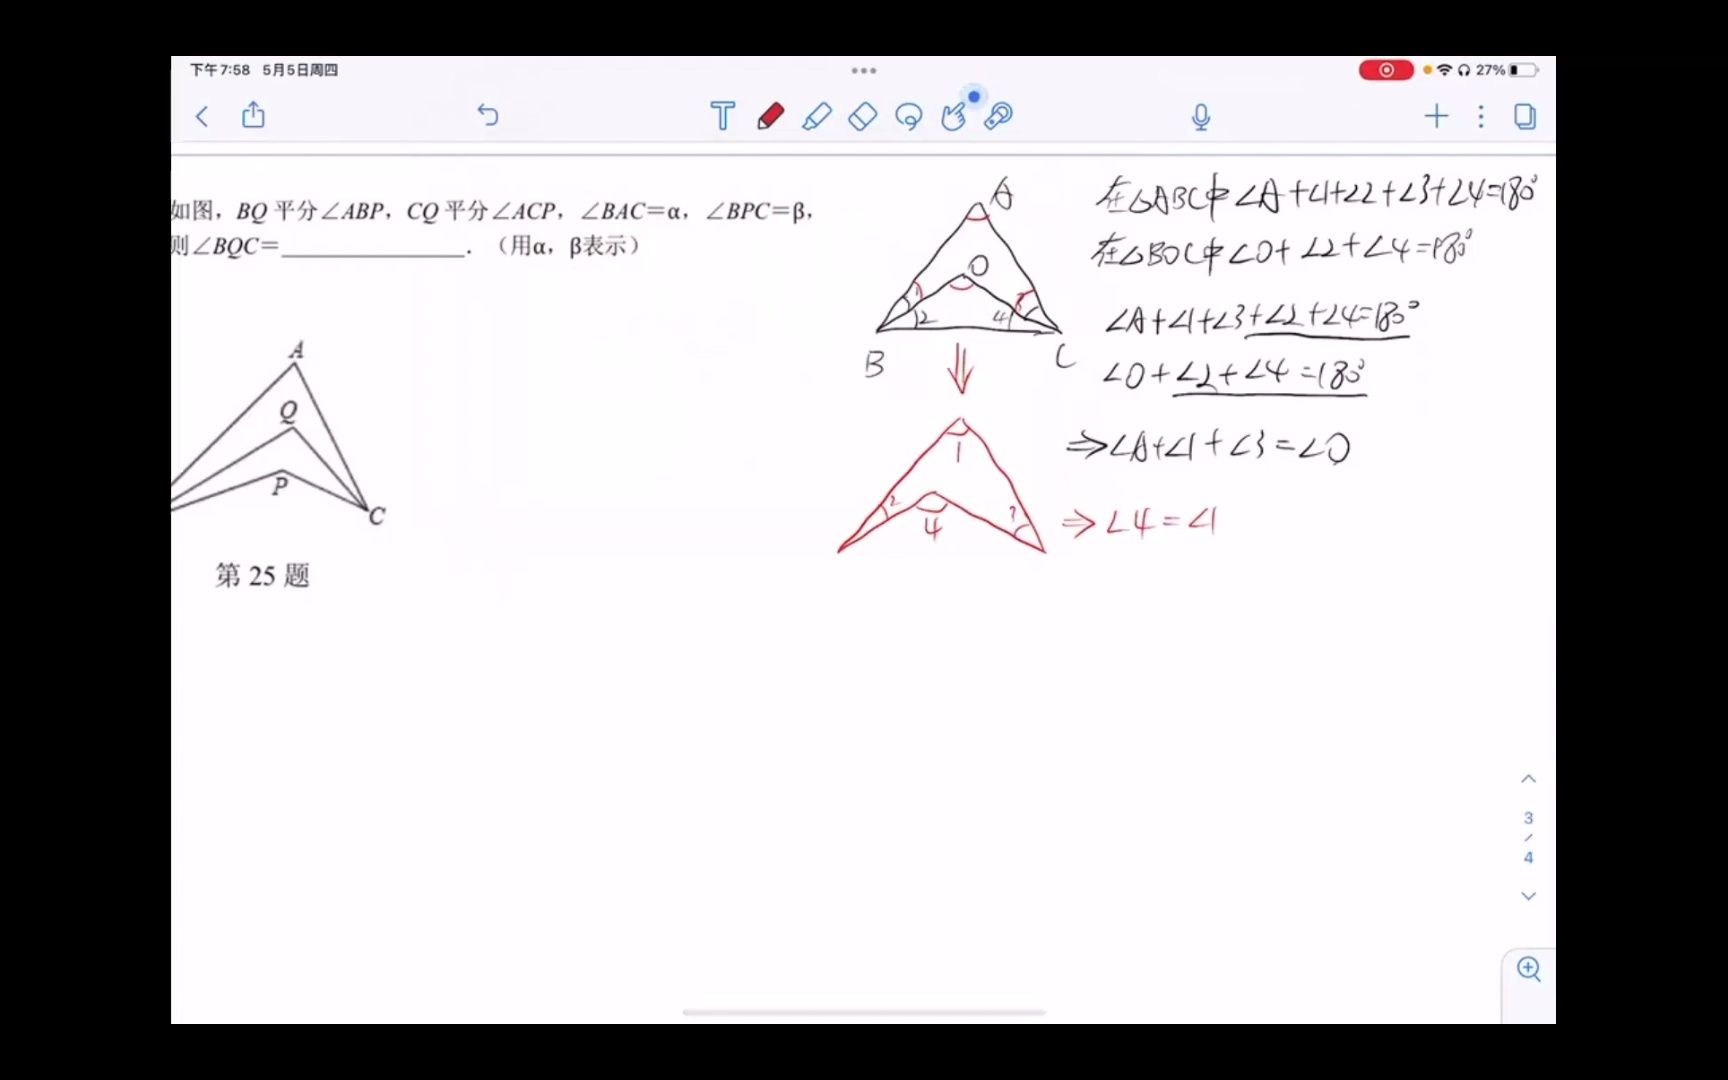 下午7:58 5月5日周四
27%
如图，BQ平分∠ABP，CQ平分∠ACP，∠BAC=α，∠BPC=β，
则∠BQC=______________．（用α，β表示）
A
Q
P
C
第 25 题
A
O
1
3
2
4
B
C
1
2
3
4
在△ABC中∠A+∠1+∠2+∠3+∠4=180°
在△BOC中∠O+∠2+∠4=180°
∠A+∠1+∠3+∠2+∠4=180°
∠O+∠2+∠4=180°
⇒∠A+∠1+∠3=∠O
⇒∠4=∠1
3
/
4